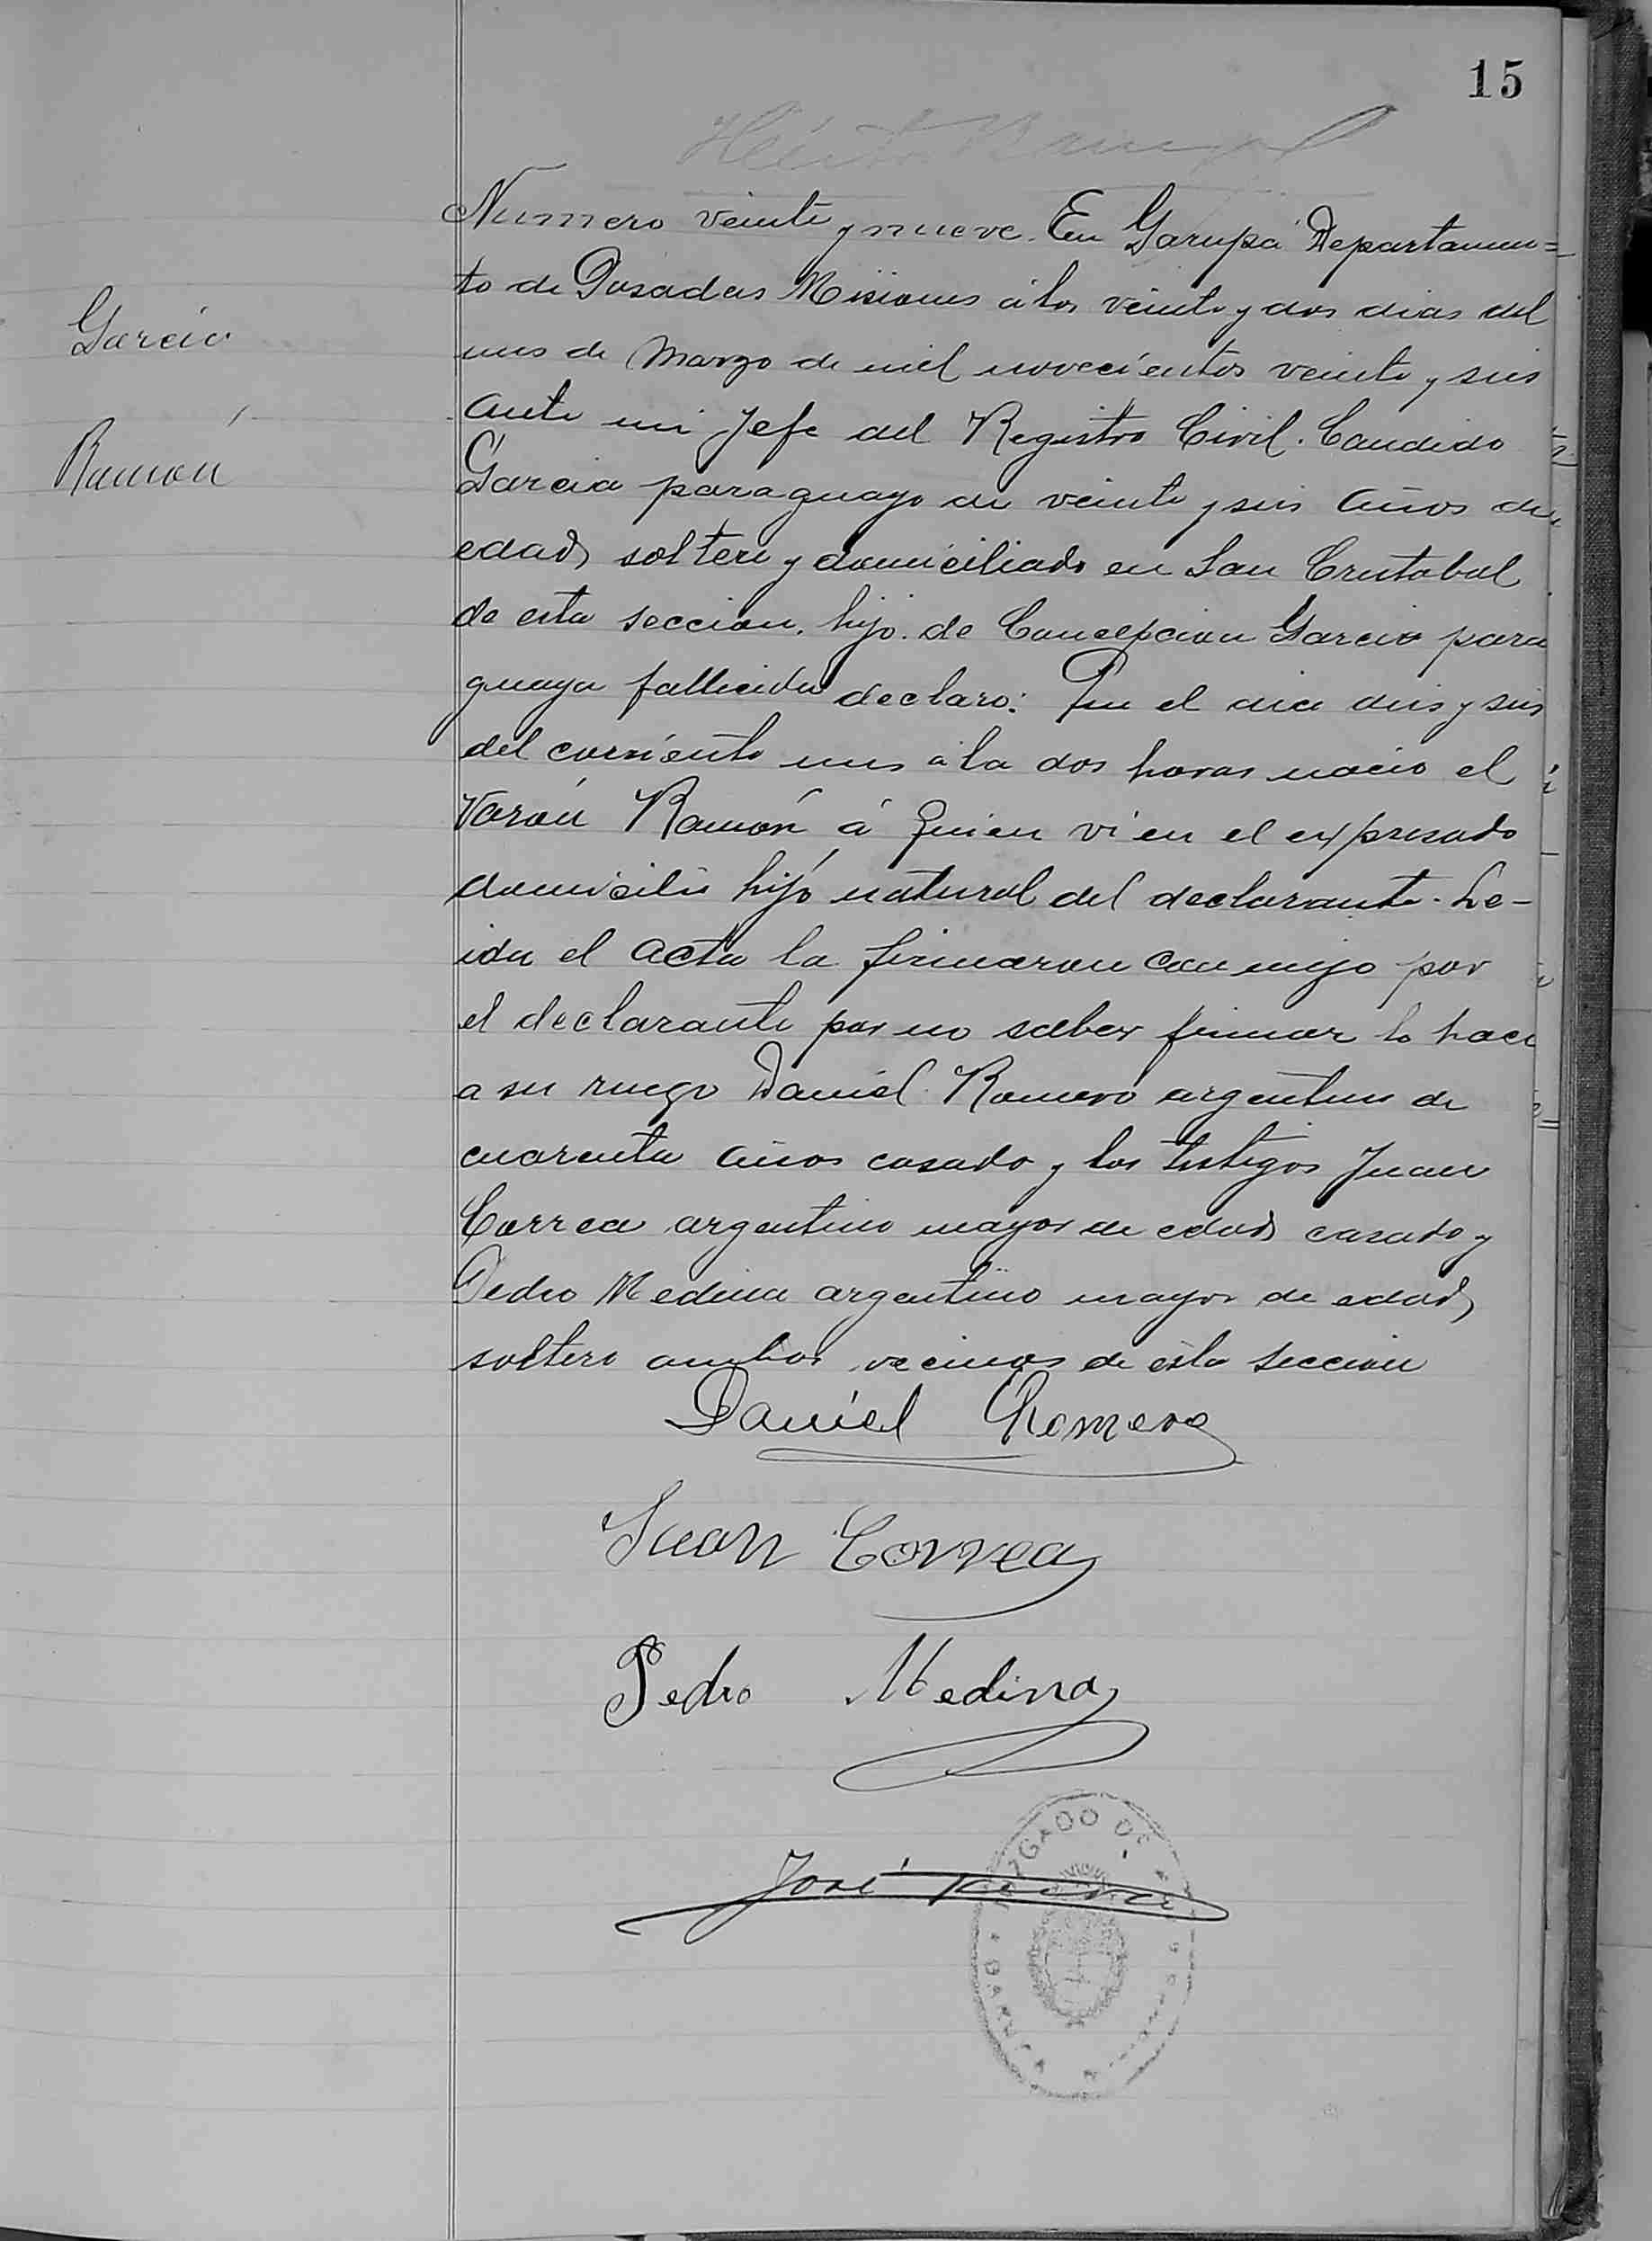 15
Garcia
Ramón
Numero veinte y nueve. En Garupá Departamen=
to de Posadas Misiones á los veinte y dos dias del
mes de Marzo de mil novecientos veinte y seis
ante mi Jefe del Registro Civil. Candido
Garcia paraguayo de veinte y seis años de
edad, soltero y domiciliado en San Cristobal
de esta seccion, hijo de Concepcion Garcia para
guaya fallecida declaro: Que el dia diez y seis
del corriente mes á la dos horas nacio el
Varón Ramón á quien vi en el expresado
domicilio hijo natural del declarante. Le-
ida el acta la firmaron conmigo por
el declarante por no saber firmar lo hace
a su ruego Daniel Romero argentino de
cuarenta años casado y los testigos Juan
Correa argentino mayor de edad casado y
Pedro Medina argentino mayor de edad,
soltero ambos vecinos de esta seccion
Daniel Romero
Juan Correa
Pedro Medina
José
JUZGADO DE